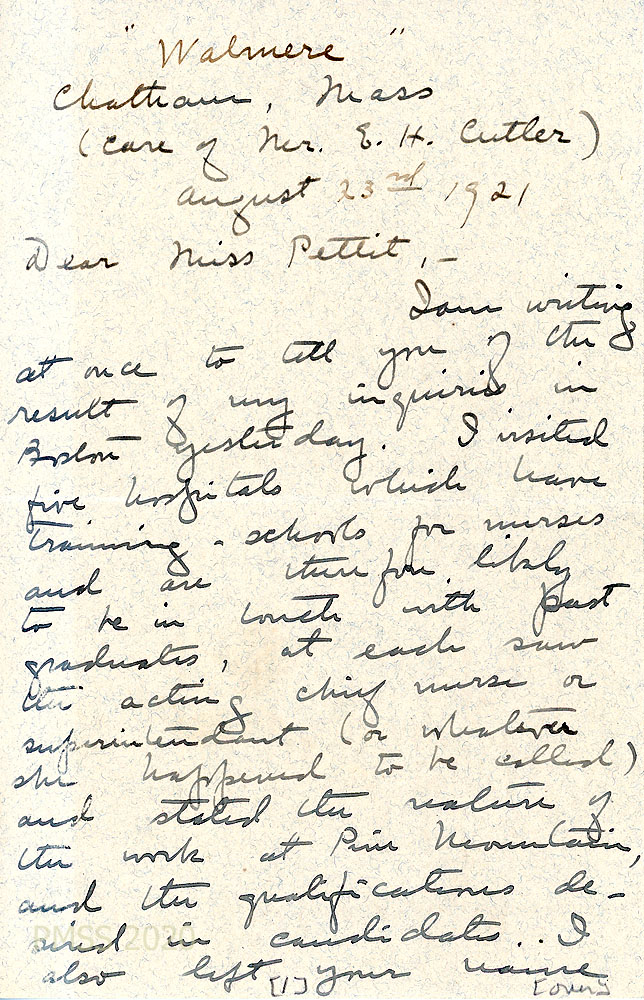 "Walmere"
Chatham, Mass
(care of Mr. E. H. Cutler)
August 23rd 1921
Dear Miss Pettit, –
I am writing
at once to tell you of the
result of my inquiries in
Boston yesterday. I visited
five hospitals which have
training-schools for nurses
and are therefore likely
to be in touch with past
graduates, at each saw
the acting chief nurse or
superintendant (or whatever
she happened to be called)
and stated the nature of
the work at Pine Mountain,
and the qualifications de-
sired in candidates.. I
also left your name
[1] [over]
PMSS 2020